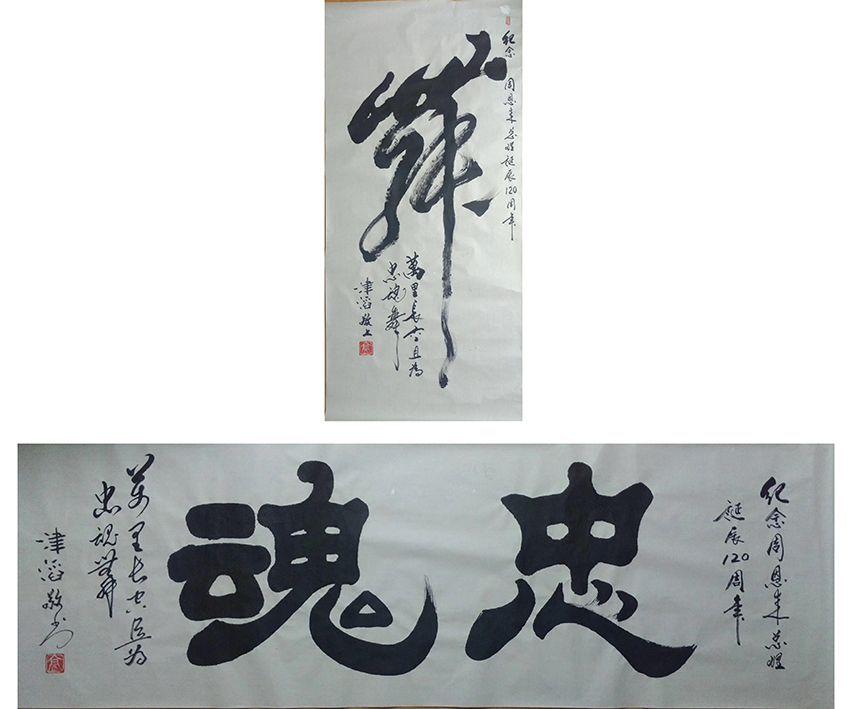 紀念 周恩来总理誕辰120周年
舞
萬里長空且為
忠魂舞
津滔敬上
紀念周恩来总理
誕辰120周年
忠魂
萬里长空且为
忠魂舞
津滔敬书